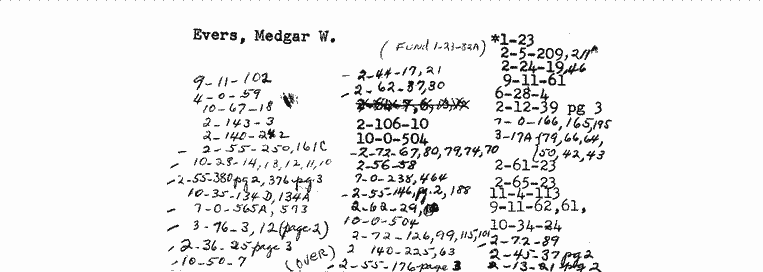 Evers, Medgar W.
(Fund 1-23-82A)
9-11-102
4-0-59
10-67-18
2-143-3
2-140-2
2-55-250,161C
10-28-14,13,12,11,10
2-55-380pg2, 376pg3
10-35-134D,134A
7-0-565A, 573
3-76-3, 12(page 2)
2-36-25page 3
10-50-7
(OVER)
2-44-17,21
2-62-37,30
2-106-10
10-0-504
2-72-67,80,79,74,70
2-56-58
7-0-238,464
2-55-146,pg.2, 188
2-62-29,
10-0-504
2-72-126,99,115,101
2 140-225,63
2-55-176page 3
*1-23
2-5-209,
2-24-19,46
9-11-61
6-28-4
2-12-39 pg 3
7-0-166,165,195
3-17A {79,66,64,
{50,42,43
2-61-23
2-65-23
11-4-113
9-11-62,61,
10-34-24
2-72-89
2-45-37pg2
2-13-21pg 2